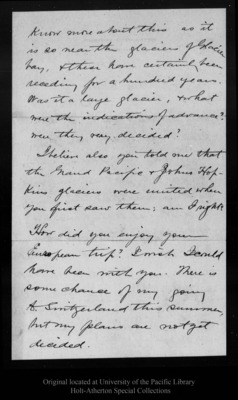 Know more about this as it
is so near the glaciers of Glacier
bay, & these have certainly been
receding for a hundred years.
Was it a large glacier, & what
were the indications of advance?
were they very decided?
I believe also you told me that
the Grand Pacific & Johns Hop-
kins glaciers were united when
you first saw them; am I right?
How did you enjoy your
European trip? I wish I could
have been with you. There is
some chance of my going
to Switzerland this summer,
but my plans are not yet
decided.
Original located at University of the Pacific Library
Holt-Atherton Special Collections